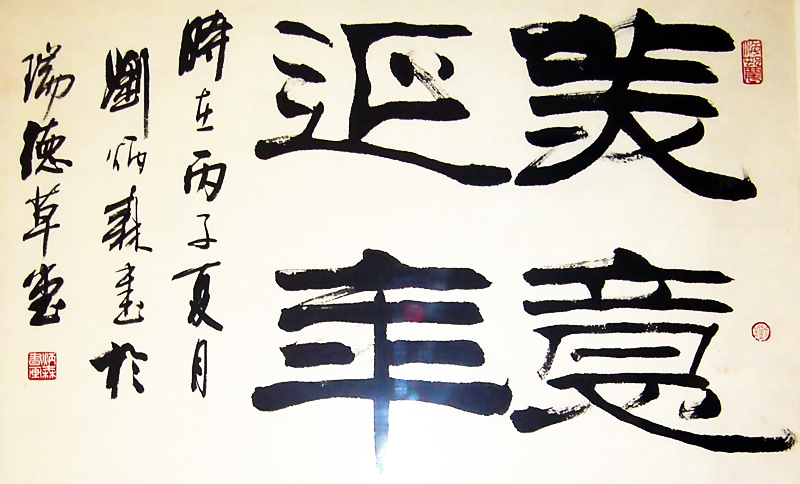 美意
延年
時在丙子夏月
劉炳森書於
瑞德草堂